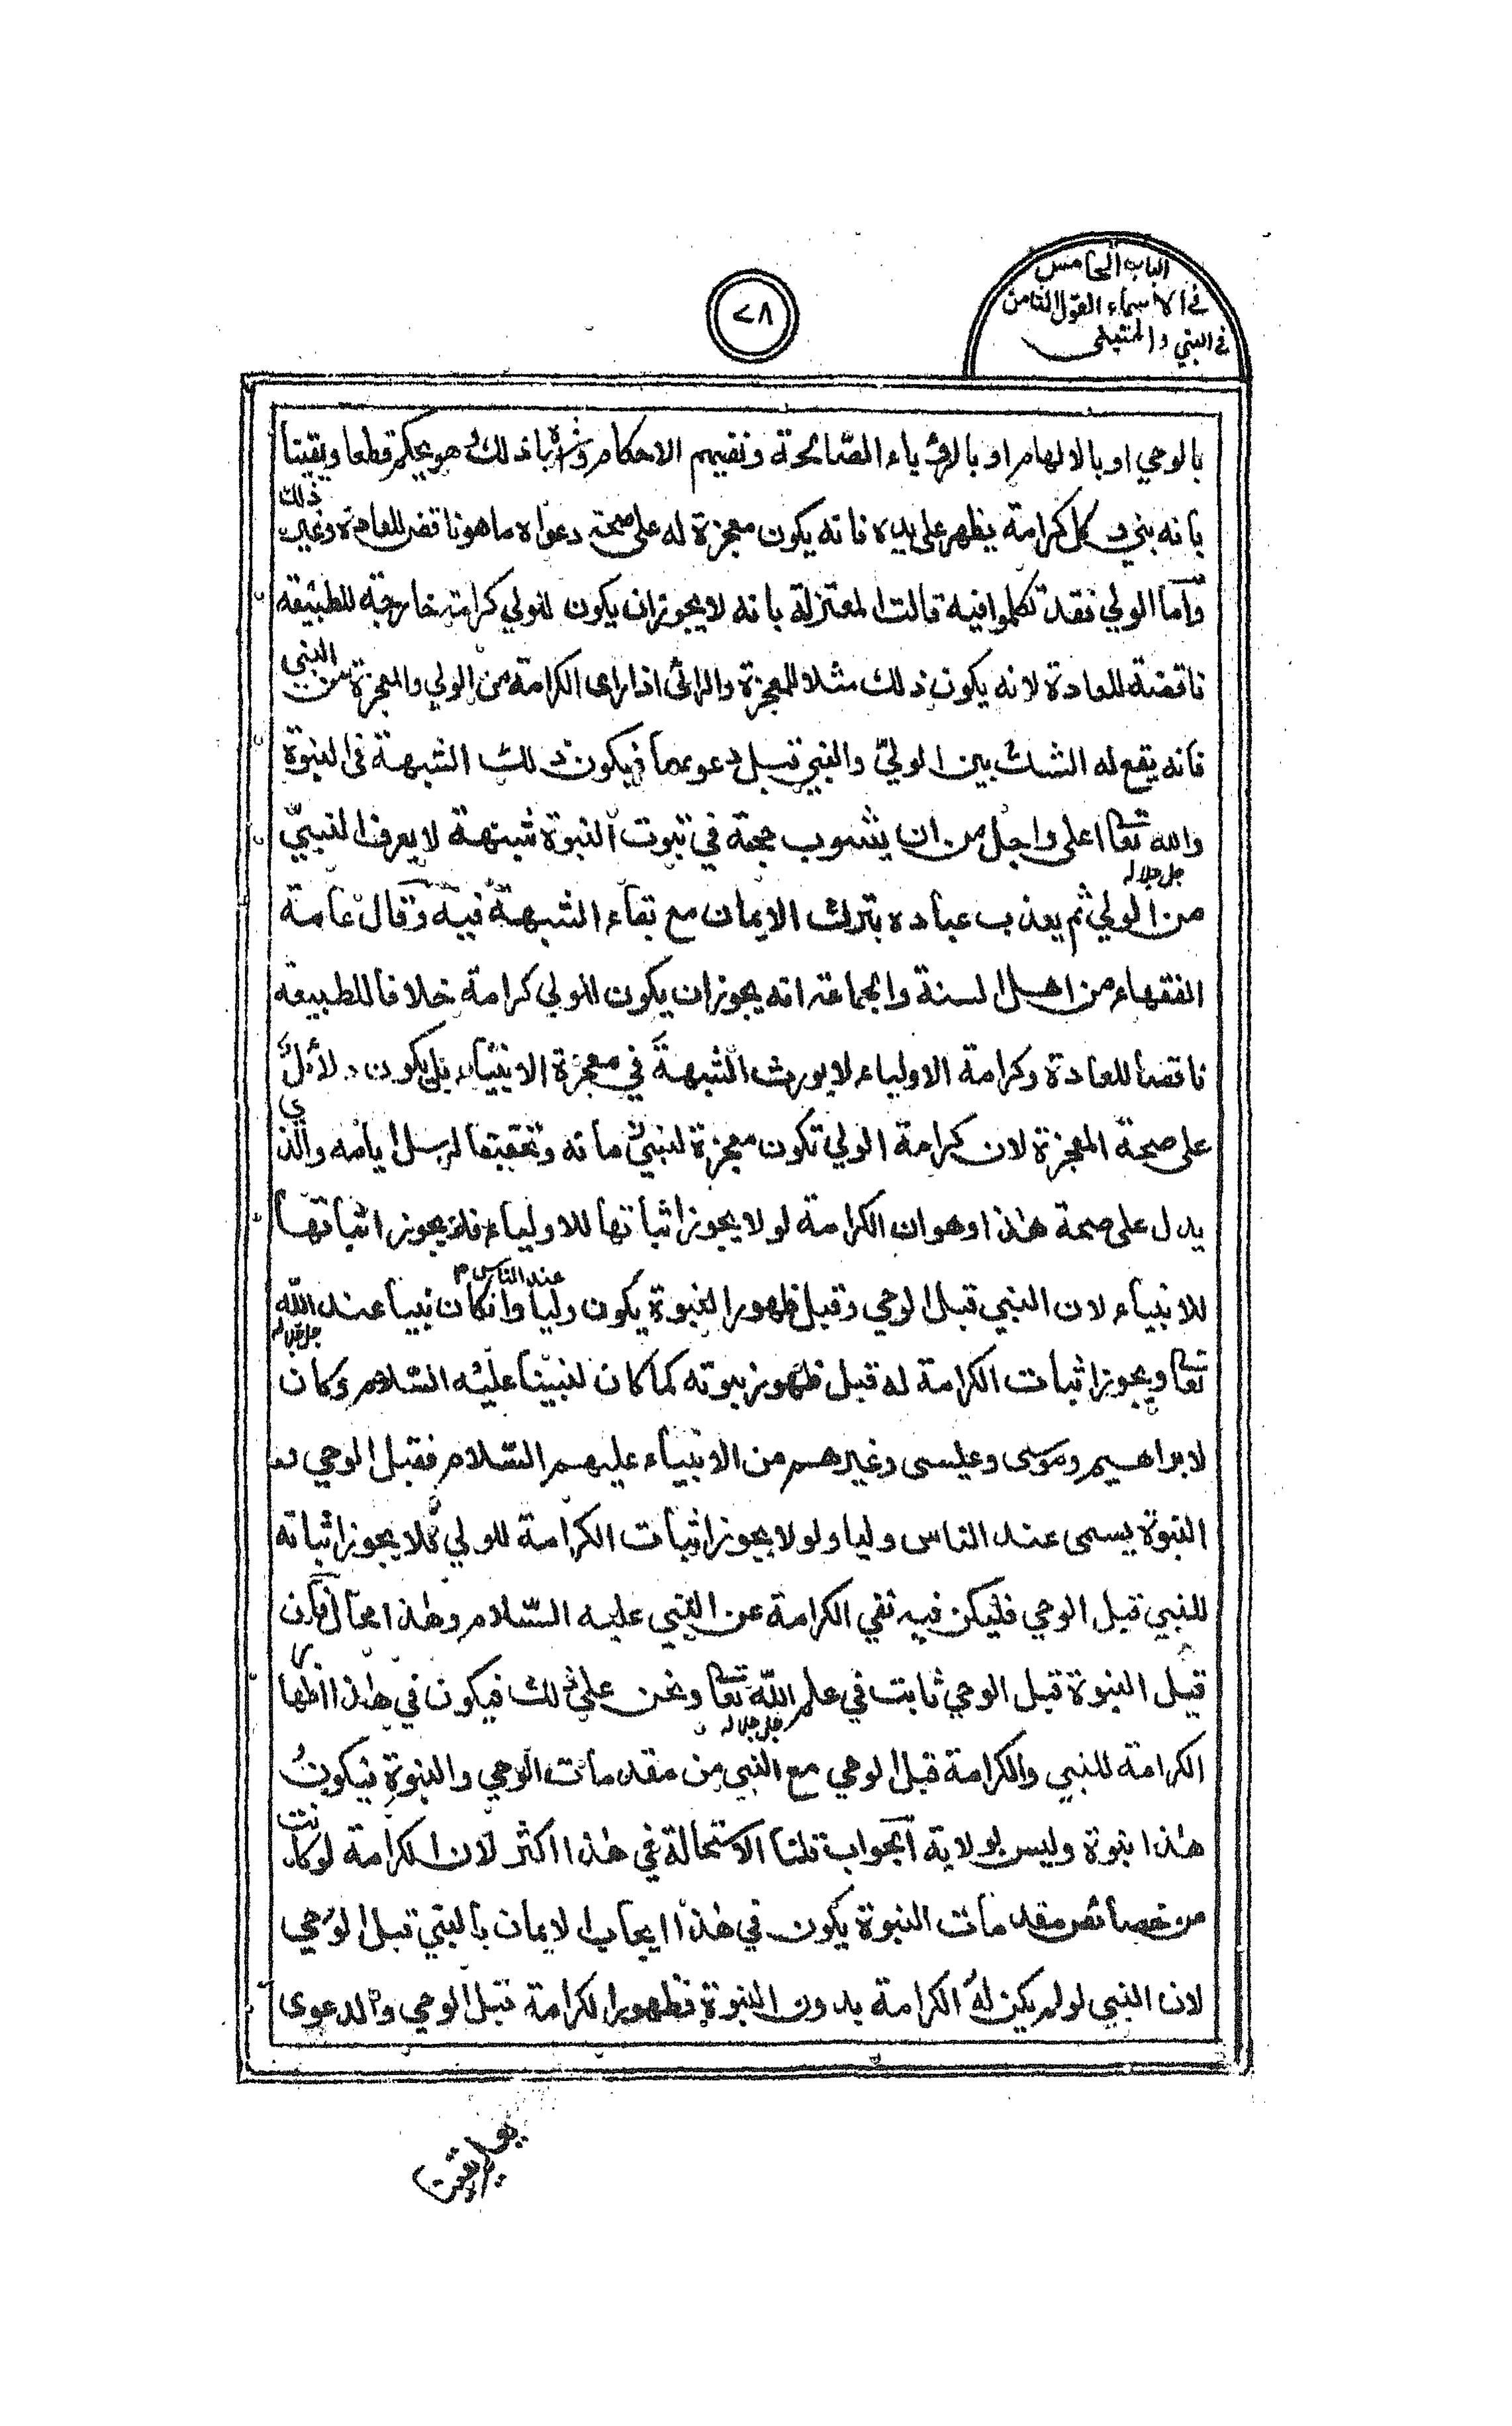 الباب الخامس
في الاسماء القول الثامن
في النبي و
٧٨
بالوحي او بالالهام او بالرؤياء الصّالحة وتفهيم الاحكام ذلك هو يحكم قطعا ويقينا
بانه نبي و كل كرامة يظهر على يده فانه يكون معجزة له على صحة دعواه ما هو ناقض للعادة وغير ذلك
واما الولي فقد تكلموا فيه قالت المعتزلة بانه لا يجوز ان يكون للولي كرامة خارجة للطبيعة
ناقضة للعادة لانه يكون ذلك مثلا للمعجزة والرائ اذا راى الكرامة من الولي والمعجزة من النبي
فانه يقع له الشك بين الوليّ والنبي قبل فيكون ذلك الشبهة في النبوة
والله تعا اعلى واجل من ان يشوب حجة في ثبوت النبوة شبهة لا يعرف النبيّ
جل جلاله
من الولي ثم يعذب عباده بترك الايمان مع بقاء الشبهة فيه وقال عامة
الفقهاء من اهل السنة والجماعة انه يجوز ان يكون للولي كرامة خلافا للطبيعة
ناقضا للعادة وكرامة الاولياء لا يورث الشبهة في معجزة الانبياء بل يكون دلائل
على صحة المعجزة لان كرامة الولي تكون معجزة لنبيّ مانه وتحقيقا لرسل ايامه والذي
يدل على صحة هذا وهو ان الكرامة لو لا يجوز اثباتها للاولياء فلا يجوز اثباتها
للانبياء لان النبي قبل الوحي وقبل ظهور النبوة يكون وليا عند الناس وانكان نبيا عند الله
جل جلاله
تعا ويجوز اثبات الكرامة له قبل ظهور نبوته كما كان لنبينا عليه السّلام وكان
لابراهيم وموسى وعيسى وغيرهم من الانبياء عليهم السّلام فقبل الوحي
النبوة يسمى عند الناس وليا ولو لا يجوز اثبات الكرامة للولي فلا يجوز اثباته
للنبي قبل الوحي فليكن فيه نفي الكرامة عن النبي عليه السّلام وهذا محال فان
قيل النبوة قبل الوحي ثابت في علم الله تعا ونحن على ذلك فيكون في هذا اظهار
جل جلاله
الكرامة للنبي والكرامة قبل الوحي مع النبي من مقدمات الوحي والنبوة فيكون
هذا نبوة وليس بولاية الجواب قلنا الاستحالة في هذا اكثر لان الكرامة لو كانت
من خصائص مقدمات النبوة يكون في هذا ايجاب الايمان بالنبي قبل الوحي
لان النبي لو لم يكن له الكرامة بدون النبوة فظهور الكرامة قبل الوحي والدعوى